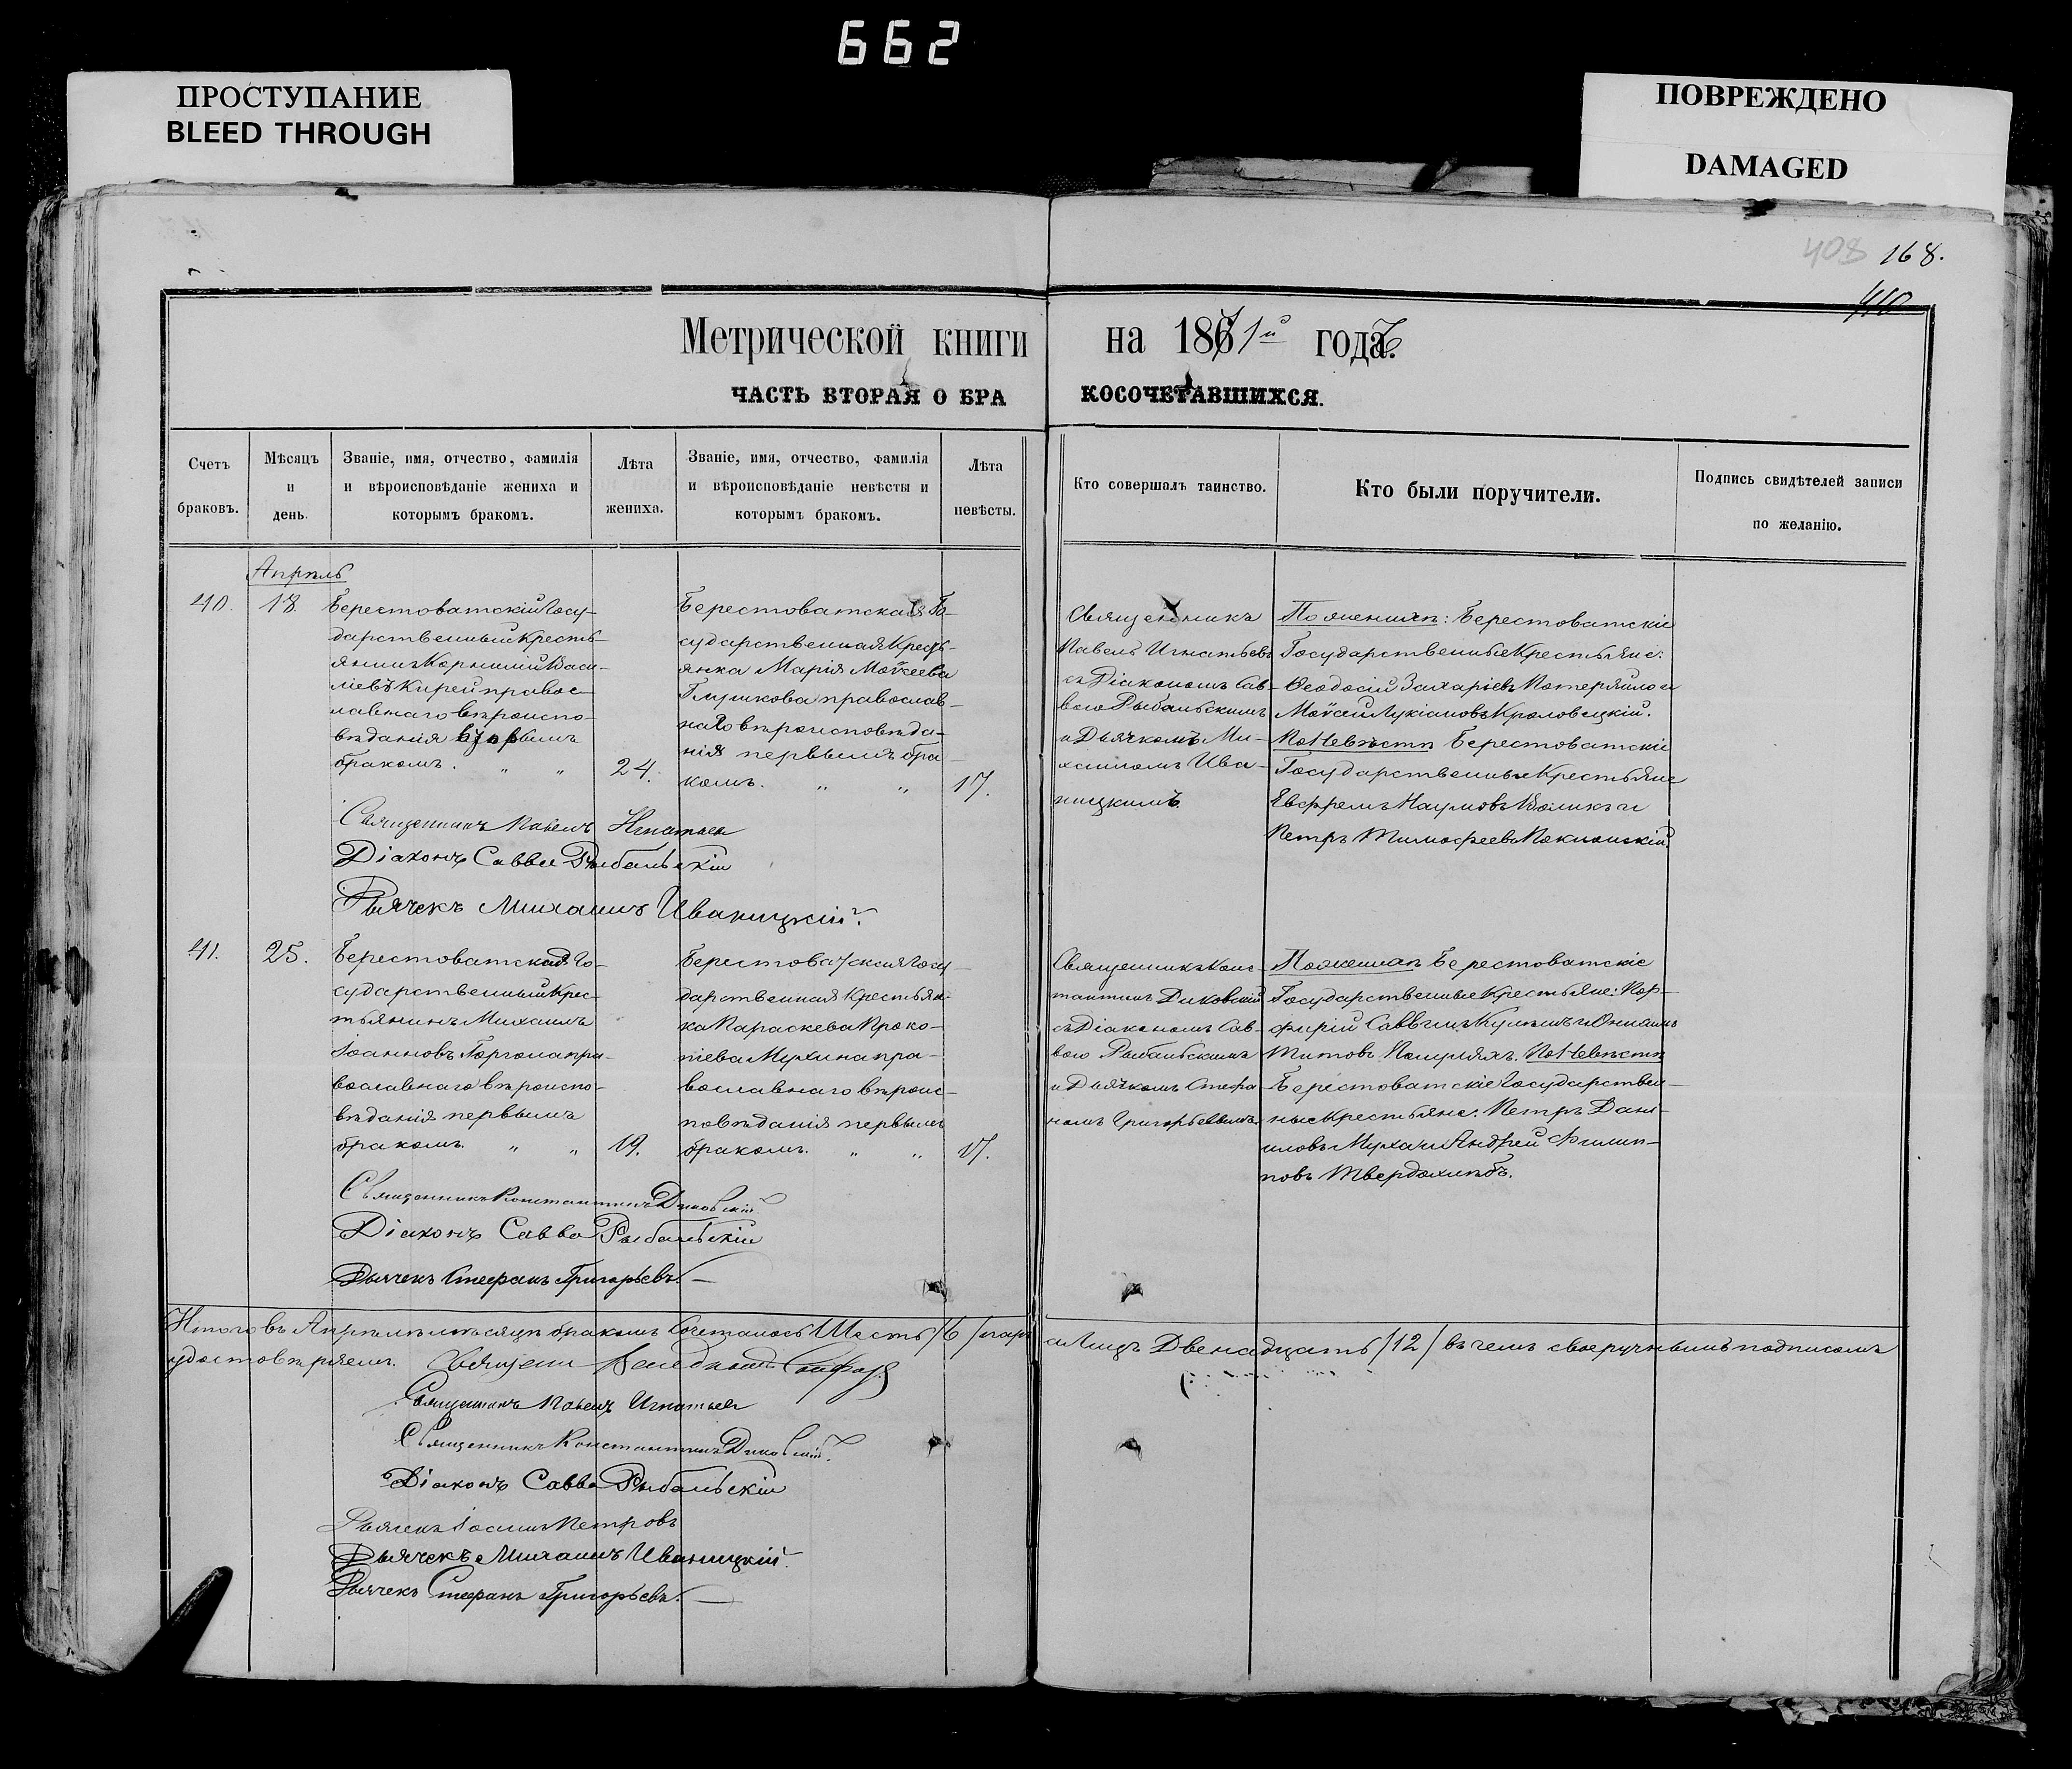 662
ПРОСТУПАНИЕ
BLEED THROUGH
ПОВРЕЖДЕНО
DAMAGED
408 168.
410
Метрической книги на 1871й года.
ЧАСТЬ ВТОРАЯ О БРАКОСОЧЕТАВШИХСЯ.
Счетъ
браковъ.
Мѣсяцъ
и
день.
Званіе, имя, отчество, фамилія
и вѣроисповѣданіе жениха и
которымъ бракомъ.
Лѣта
жениха.
Званіе, имя, отчество, фамилія
и вѣроисповѣданіе невѣсты и
которымъ бракомъ.
Лѣта
невѣсты.
Кто совершалъ таинство.
Кто были поручители.
Подпись свидѣтелей записи
по желанію.
Апрѣль
40.
18.
Берестоватскій Госу-
дарственный Кресть-
янинъ Корнилій Васи-
ліевъ Кирей правос-
лавнаго вѣроиспо-
вѣданія вторымъ
бракомъ. „ „
24.
Берестоватская Го-
сударственная Кресть-
янка Марія Моѵсеева
Глушкова православ-
наго вѣроисповѣда-
нія первымъ бра-
комъ. „ „
17.
Священникъ
Павелъ Игнатьевъ
съ Діакономъ Сав-
вою Рыбальскимъ
и Дьячкомъ Ми-
хаиломъ Ива-
ницкимъ.
По женихѣ: Берестоватскіе
Государственные Крестьяне:
Ѳеодосій Захаріевъ Потеряйло и
Моѵсей Лукіановъ Кроловецкій.
По Невѣстѣ Берестоватскіе
Государственные Крестьяне
Евфремъ Наумовъ Воликъ и
Петръ Тимофеевъ Поклонскій.
Священникъ Павелъ Игнатьев
Діаконъ Савва Рыбальскій
Дьячекъ Михаилъ Иваницкій.
41.
25.
Берестоватскій Го-
сударственный Крес-
тьянинъ Михаилъ
Іоанновъ Горгола пра-
вославнаго вѣроиспо-
вѣданія первымъ
бракомъ. „ „
19.
Берестоватская Госу-
дарственная Крестьян-
ка Параскева Проко-
піева Мухина пра-
вославнаго вѣроис-
повѣданія первымъ
бракомъ. „ „
17.
Священникъ Конс-
тантинъ Диковскій
съ Діакономъ Сав-
вою Рыбальскимъ
и Дьячкомъ Стефа
номъ Григорьевымъ.
По женихѣ Берестоватскіе
Государственные Крестьяне: Пор-
фирій Саввинъ
Титовъ По Невѣстѣ
Берестоватскіе Государствен-
ные Крестьяне: Петръ Дани-
иловъ Муха и Андрей Филип-
повъ Твердохлѣбъ.
Священникъ Константинъ Диковскій
Діаконъ Савва Рыбальскій
Дьячекъ Стефанъ Григорьевъ.
Итого въ Апрѣлѣ мѣсяцѣ бракомъ сочеталось Шесть /6/ паръ
а Лицъ Двенадцать /12/ въ чемъ своеручнымъ подписомъ
удостовѣряемъ.
Священникъ Павелъ Игнатьев
Священникъ Константинъ Диковскій.
Діаконъ Савва Рыбальскій
Дьячекъ Іоаннъ Петровъ
Дьячекъ Михаилъ Иваницкій.
Дьячекъ Стефанъ Григорьевъ.